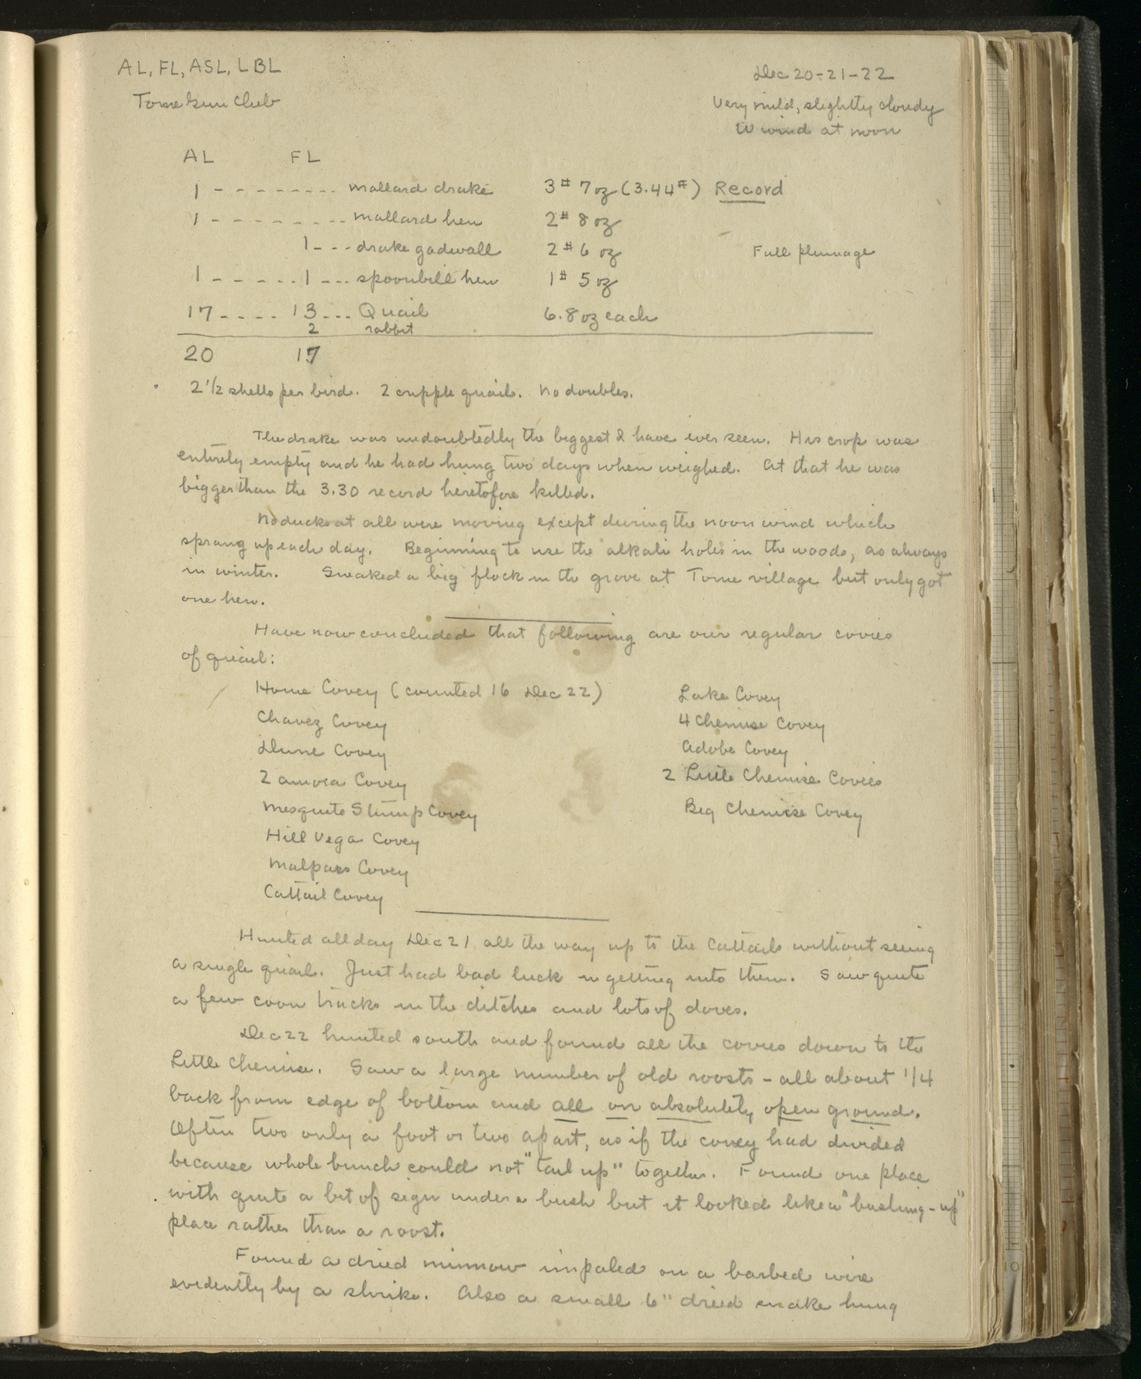 AL, FL, ASL, LBL
Dec 20-21-22
Tome Gun Club
Very mild, slightly cloudy
W wind at noon
AL FL
1 - - - - - - - - mallard drake 3# 7 oz (3.44#) Record
1 - - - - - - - - mallard hen 2# 8 oz
1 - - - drake gadwall 2# 6 oz Full plumage
1 - - - - - 1 - - - spoonbill hen 1# 5 oz
17 - - - - 13 - - - Quail 6.8 oz each
2 rabbit
20 17
2 1/2 shells per bird. 2 cripple quail. No doubles.
The drake was undoubtedly the biggest I have ever seen. His crop was
entirely empty and he had hung two days when weighed. At that he was
bigger than the 3.30 record heretofore killed.
No ducks at all were moving except during the noon wind which
sprang up each day. Beginning to use the alkali holes in the woods, as always
in winter. Sneaked a big flock in the grove at Tome village but only got
one hen.
Have now concluded that following are our regular covies
of quail:
Home Covey (counted 16 Dec 22)
Lake Covey
Chavez Covey
4 Chemise Covey
Dune Covey
Adobe Covey
2 amora Covey
2 Little Chemise Covies
Mesquite Stump Covey
Big Chemise Covey
Hill Vega Covey
Malpais Covey
Cattail Covey
Hunted all day Dec 21 all the way up to the Cattails without seeing
a single quail. Just had bad luck in getting into them. Saw quite
a few coon tracks in the ditches and lots of doves.
Dec 22 hunted south and found all the covies down to the
Little Chemise. Saw a large number of old roosts - all about 1/4
back from edge of bottom and all on absolutely open ground.
Often two only a foot or two apart, as if the covey had divided
because whole bunch could not "tail up" together. Found one place
with quite a bit of sign under a bush but it looked like a "bushing-up"
place rather than a roost.
Found a dried minnow impaled on a barbed wire
evidently by a shrike. Also a small 6" dried snake hung